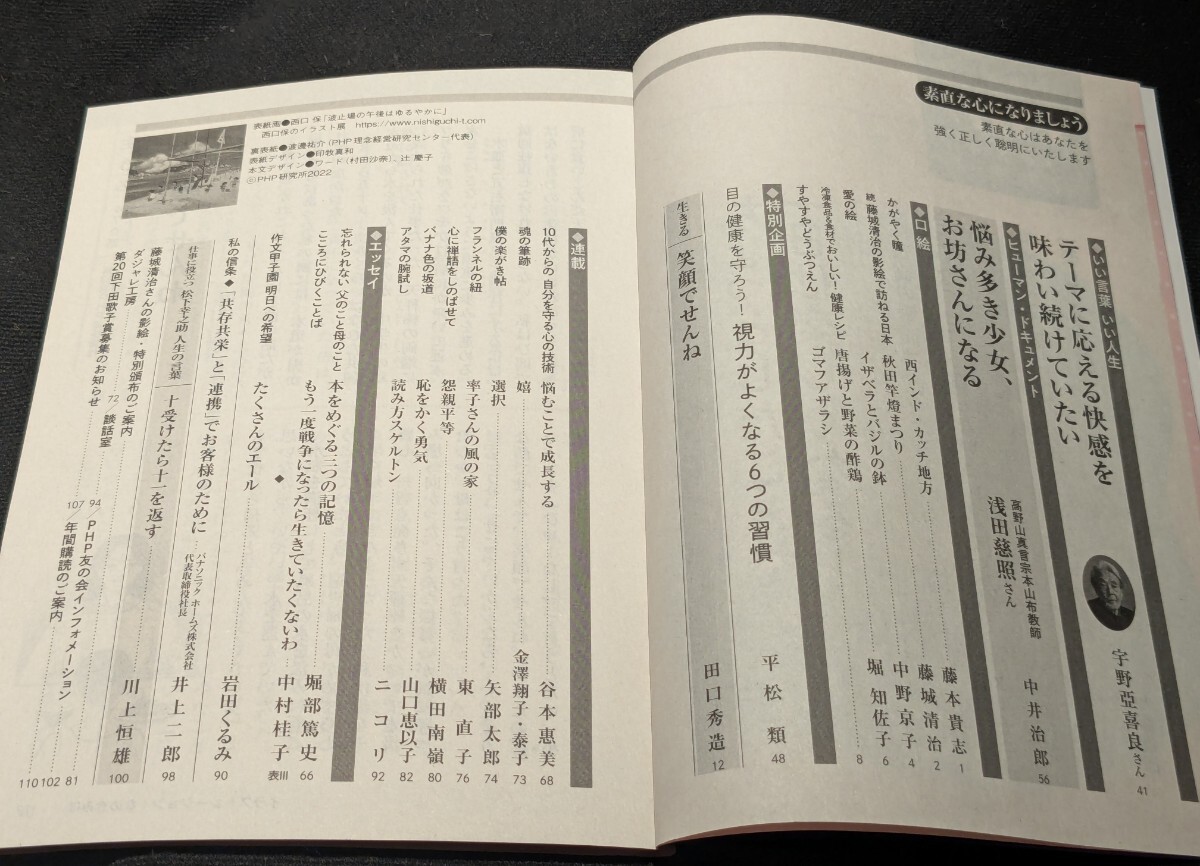 素直な心になりましょう
素直な心はあなたを
強く正しく聡明にいたします
◆いい言葉 いい人生
テーマに応える快感を
味わい続けていたい
宇野亞喜良さん 41
◆ヒューマン・ドキュメント
悩み多き少女、
お坊さんになる
高野山真言宗本山布教師
浅田慈照さん
中井治郎 56
◆口絵
かがやく瞳 西インド・カッチ地方 藤本貴志 1
続 藤城清治の影絵で訪ねる日本 秋田竿燈まつり 藤城清治 2
愛の絵 イザベラとバジルの鉢 中野京子 4
冷凍食品&食材でおいしい!健康レシピ 唐揚げと野菜の酢鶏 堀 知佐子 6
すやすやどうぶつえん ゴマフアザラシ 8
◆特別企画
目の健康を守ろう! 視力がよくなる6つの習慣 平松 類 48
生きる 笑顔でせんね 田口秀造 12
◆連載
10代からの 自分を守る心の技術 悩むことで成長する 谷本惠美 68
魂の筆跡 嬉 金澤翔子・泰子 73
僕の楽がき帖 選択 矢部太郎 74
フランネルの紐 率子さんの風の家 東 直子 76
心に禅語をしのばせて 怨親平等 横田南嶺 80
バナナ色の坂道 恥をかく勇気 山口恵以子 82
アタマの腕試し 読み方スケルトン ニコリ 92
◆エッセイ
忘れられない 父のこと母のこと 本をめぐる三つの記憶 堀部篤史 66
こころにひびくことば もう一度戦争になったら生きていたくないわ 中村桂子 表Ⅲ
◆
作文甲子園 明日への希望 たくさんのエール 岩田くるみ 90
私の信条◆「共存共栄」と「連携」でお客様のために パナソニック ホームズ株式会社
代表取締役社長 井上二郎 98
仕事に役立つ 松下幸之助 人生の言葉 十受けたら十一を返す 川上恒雄 100
藤城清治さんの影絵・特別頒布のご案内 94/PHP友の会インフォメーション 81
ダジャレ工房 72 談話室 107/年間購読のご案内 102
第20回下田歌子賞募集のお知らせ 110
表紙画●西口 保「波止場の午後はゆるやかに」
西口保のイラスト展 https://www.nishiguchi-t.com
裏表紙●渡邊祐介(PHP理念経営研究センター代表)
表紙デザイン●印牧真和
本文デザイン●ワード(村田沙奈)、辻 慶子
©PHP研究所2022